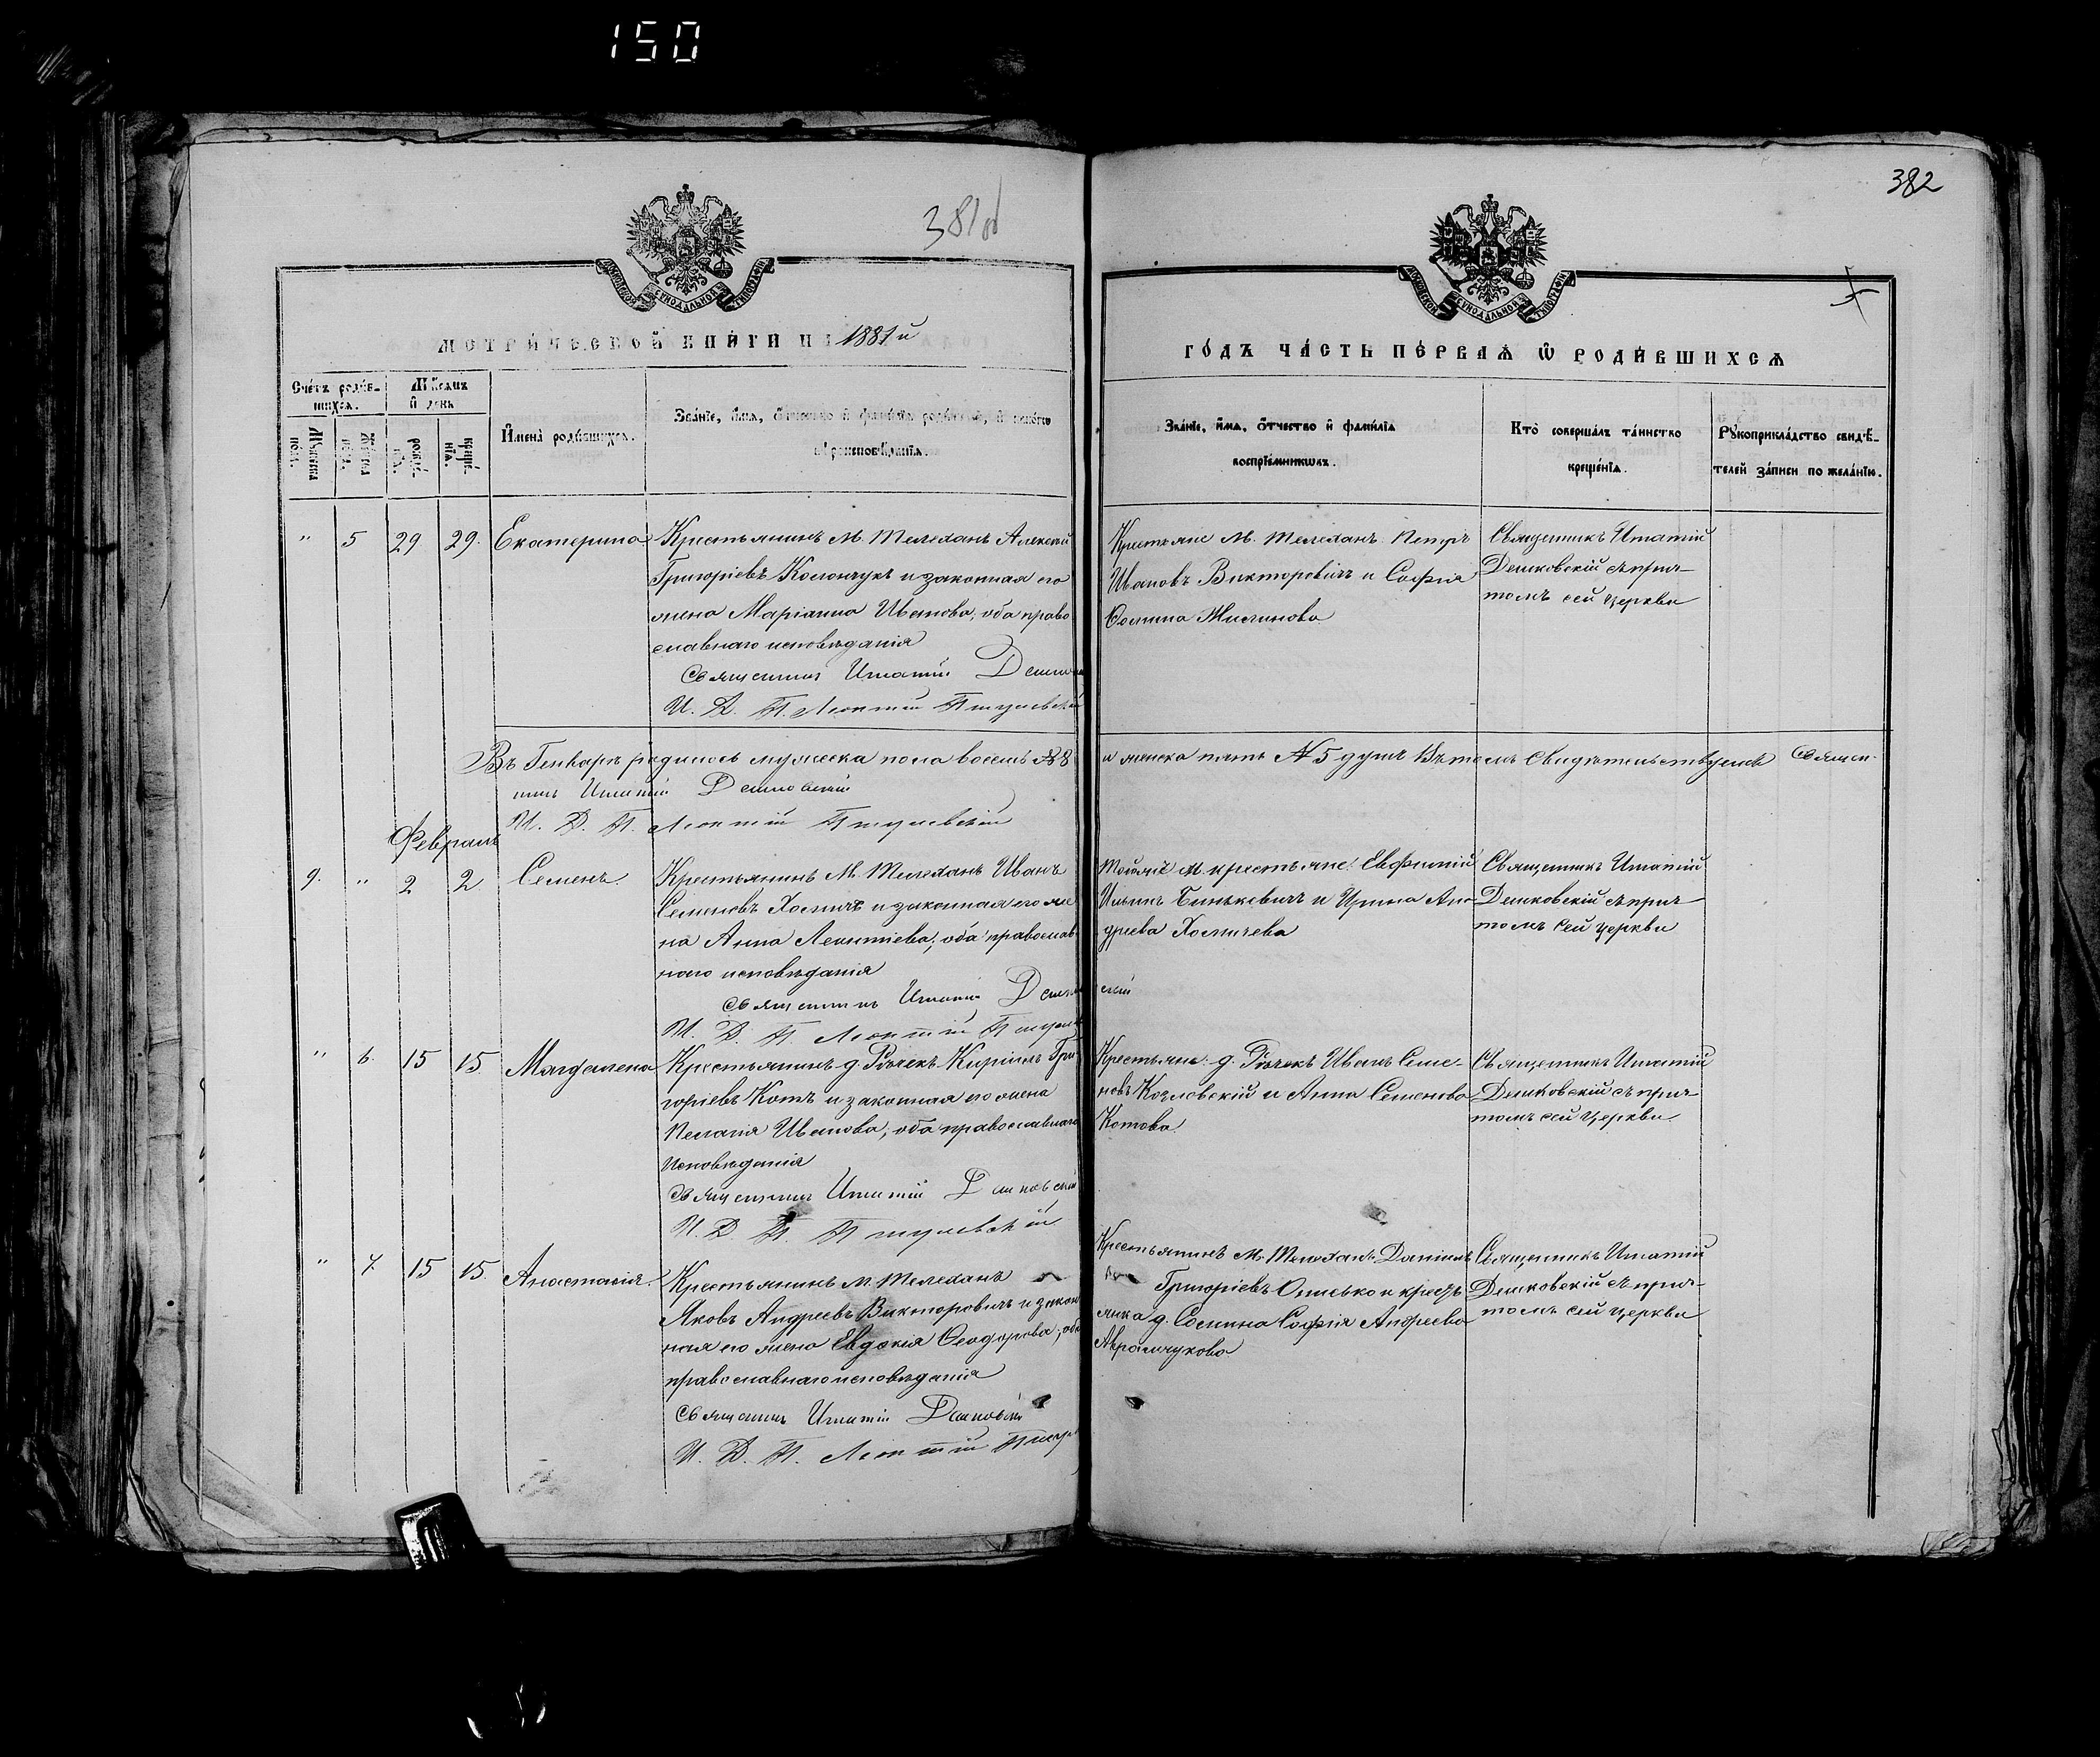 150
381об
382
МОСКОВСКОЙ СѴНОДАЛЬНОЙ ТИПОГРАФІИ
МОСКОВСКОЙ СѴНОДАЛЬНОЙ ТИПОГРАФІИ
МЕТРИ́ЧЕСКОЙ КНИ́ГИ НА 1881й
ГО́ДЪ ЧА́СТЬ ПЕ́РВАѦ Ѡ РОДИ́ВШИХСѦ
Сче́тъ роди́в-
шихсѧ.
Мѣ́сѧцъ
и҆ де́нь
Мꙋ́жеска
по́ла.
Же́нска
по́ла.
рожде́-
нїѧ.
креще́-
нїѧ.
И҆мена̀ роди́вшихсѧ.
Зва́нїе, и҆́мѧ, ѻ҆́тчество и҆ фамѝлїѧ роди́телей, и҆ како́гѡ
вѣроисповѣ́данїѧ.
Зва́нїе, и҆́мѧ, ѻ҆́тчество и҆ фамѝлїѧ
воспрїе́мникѡвъ.
Кто̀ соверша́лъ та́инство
креще́нїѧ.
Рꙋкоприкла́дство свидѣ́-
телей за́писи по жела́нїю.
" 5 29 29. Екатерина
Крестьянинъ М. Телеханъ Алексѣй
Григоріевъ Колончукъ и законная его
жена Маріанна Иванова, оба право
славнаго исповѣданія
Священникъ Игнатій
И. Д. П. Леонтій
Крестьяне М. Телеханъ Петръ
Ивановъ Викторовичъ и Софія
Ѳомина
Священникъ Игнатій
Демковскій съ прич-
томъ сей церкви
Въ Генварѣ родилось мужеска пола восемь №8 и женска пять №5 душъ Въ томъ свидѣтельствуемъ Священ-
никъ Игнатій Демковскій
И. Д. П. Леонтій
Февраль
9. " 2 2 Семенъ.
Крестьянинъ М. Телеханъ Иванъ
Семеновъ Хомичъ и законная его же
на Анна Леонтіева, оба православ
наго исповѣданія
Священникъ Игнатій Демковскій
И. Д. П. Леонтій
Тойже М. крестьяне: Евфимій
Ильинъ Бинькевичъ и Ирина Ан-
дреева Хомичева
Священникъ Игнатій
Демковскій съ прич-
томъ сей церкви
" 6. 15 15. Магдалена
Крестьянинъ д. Рѣчекъ Кирилъ Гри
горіевъ Котъ и законная его жена
Пелагія Иванова, оба православнаго
исповѣданія
Священникъ Игнатій Демковскій
И. Д. П.
Крестьяне: д. Рѣчекъ Иванъ Семе-
новъ Козловскій и Анна Семенова
Котова.
Священникъ Игнатій
Демковскій съ прич-
томъ сей церкви.
" 7. 15 15. Анастасія.
Крестьянинъ М. Телеханъ
Яковъ Андреевъ Викторовичъ и закон
ная его жена Евдокія Ѳеодорова, оба
православнаго исповѣданія
Священникъ Игнатій Демковскій
И. Д. П. Леонтій
Крестьянинъ М. Телеханъ Даніилъ
Григоріевъ Олисько и кресть
янка д. Сомина Софія Андреева
Аврамчукова
Священникъ Игнатій
Демковскій съ прич-
томъ сей церкви